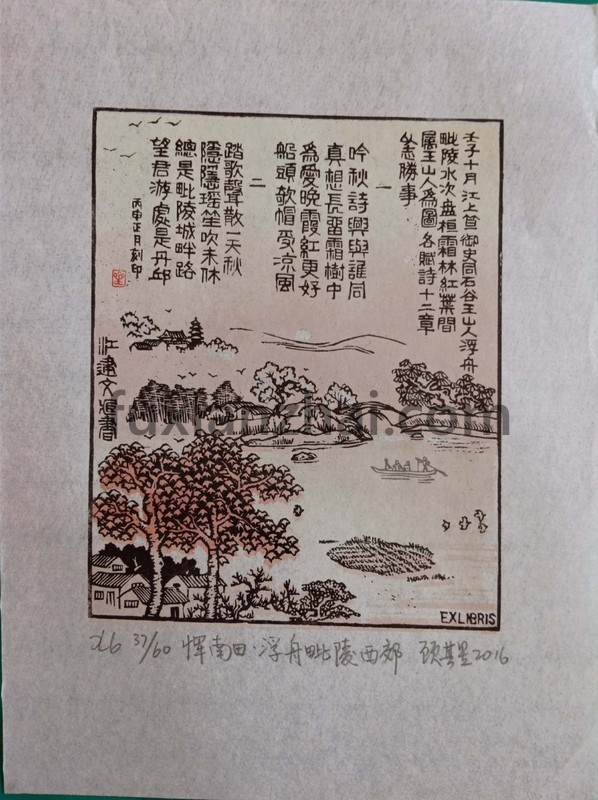 壬子十月江上笪御史同石谷王山人浮舟
毗陵水次盘桓霜林红葉間
属王山人為圖各赋詩十二章
𥳑勝事
一
吟秋詩興與誰同
真想長留霜樹中
為愛晚霞紅更好
船頭欹帽受涼風
二
踏歌聲散一天秋
隱隱瑶笙吹未休
總是毗陵城畔路
望君游處是丹邱
丙申正月刻印
江建文恨書
fuxianzhai.com
EXLIBRIS
X6 37/60 恽南田·浮舟毗陵西郊 顾其星2016